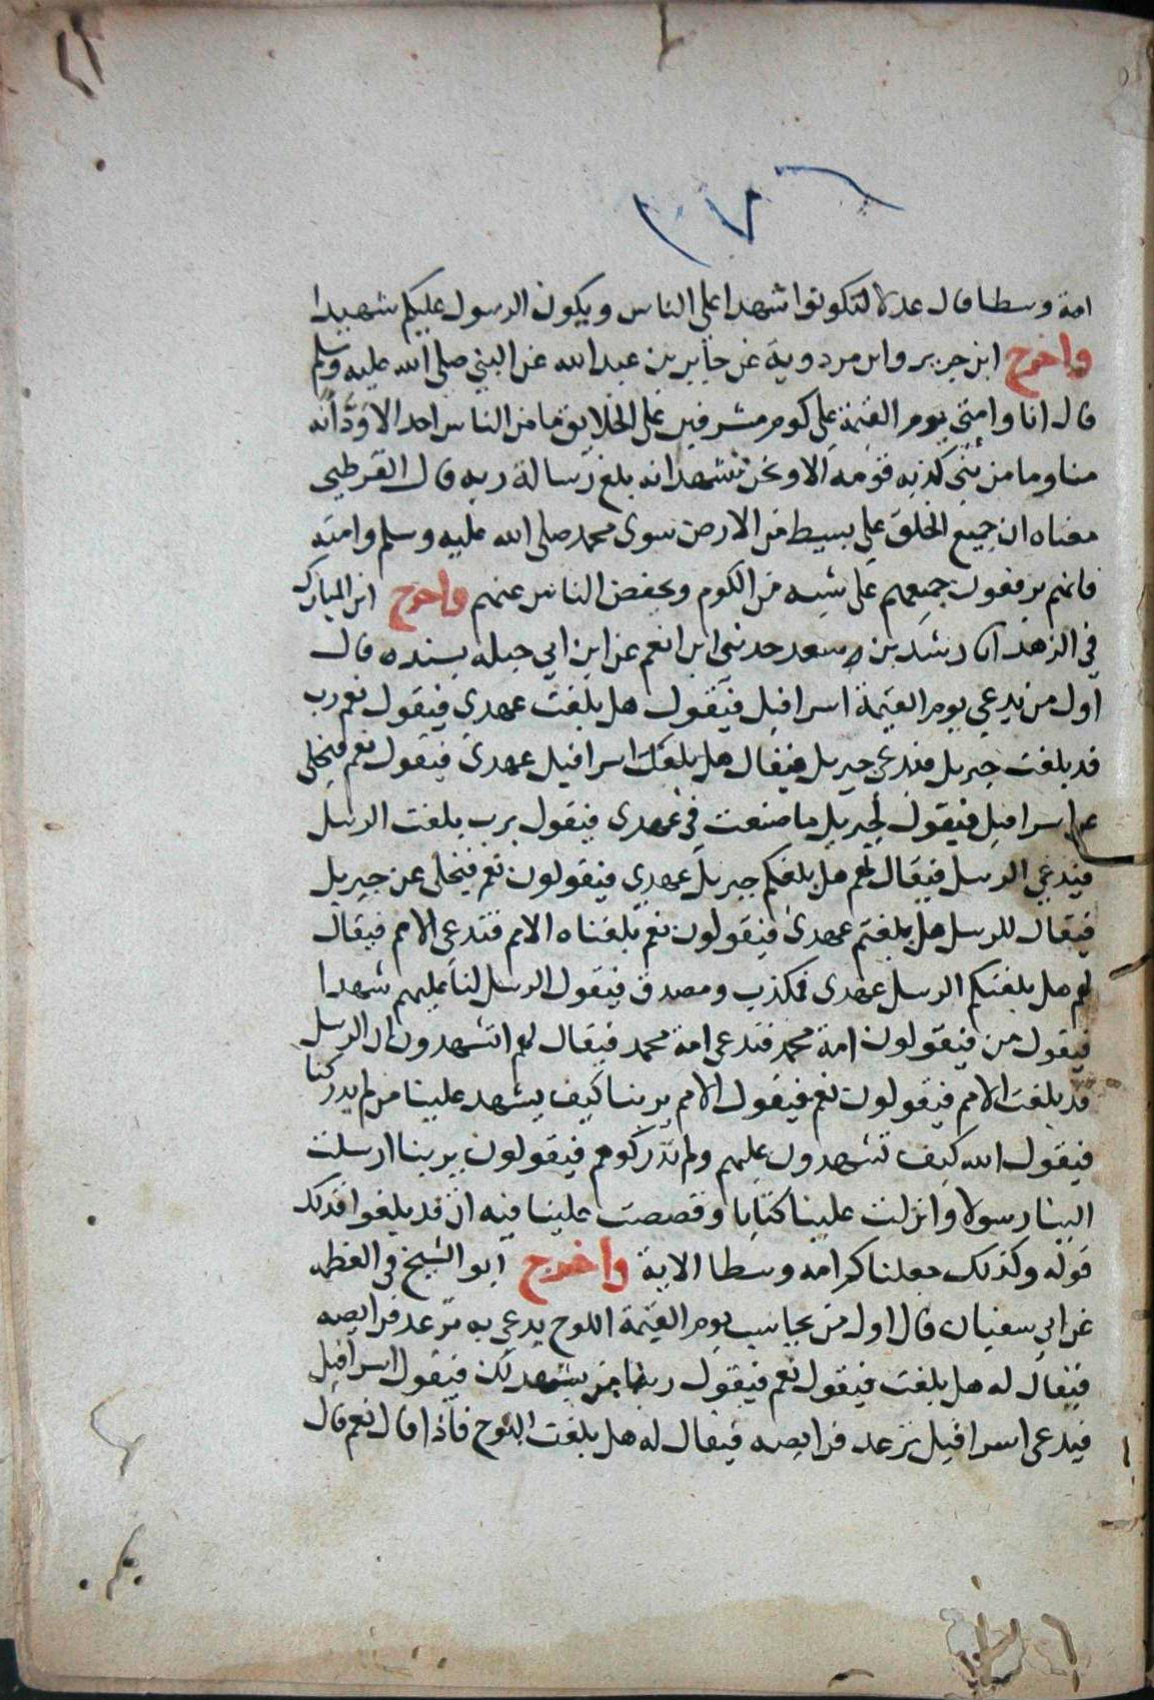 امة وسطا قال عدلا لتكونوا شهدا على الناس ويكون الرسول عليكم شهيدا
واخرج ابن جرير وابن مردوية عن جابر بن عبد الله عن النبي صلى الله عليه وسلم
قال انا وامتي يوم القيمة على كوم مشرفين على الخلايق ما من الناس احد الا ودّ أنه
منا وما من نبي كذبه قومه الا ونحن نشهد انه بلغ رسالة ربه قال القرطبي
معناه ان جميع الخلق على بسيط من الارض سوى محمد صلى الله عليه وسلم وامته
فانهم يرفعون جميعهم على شبه من الكوم ويخفض الناس عنهم واخرج ابن المبارك
في الزهد انا رشد بن سعد حدثني ابن انعم عن ابن ابي جبله بسنده قال
اول من يدعي يوم القيمة اسرافيل فيقول هل بلغت عهدي فيقول نعم رب
قد بلغت جبريل فيدعى جبريل فيقال هل بلغك اسرافيل عهدي فيقول نعم فيخلى
عن اسرافيل فيقول لجبريل ما صنعت في عهدي فيقول يرب بلغت الرسل
فيدعي الرسل فيقال لهم هل بلغكم جبريل عهدي فيقولون نعم فيخلى عن جبريل
فيقال للرسل هل بلغتم عهدي فيقولون نعم بلغناه الامم فتدعى الامم فيقال
لهم هل بلغتكم الرسل عهدي فمكذب ومصدق فيقول الرسل لنا عليهم شهدا
فيقول من فيقولون امة محمد فتدعى امة محمد فيقال لهم اتشهدون ان الرسل
قد بلغت الامم فيقولون نعم فيقول الامم يربنا كيف يشهد علينا من لم يدركنا
فيقول الله كيف تشهدون عليهم ولم تدركوهم فيقولون يربنا ارسلت
الينا رسولا وانزلت علينا كتابا وقصصت علينا فيه ان قد بلغوا فذلك
قوله وكذلك جعلناكم امه وسطا الاية واخرج ابو الشيخ في العظمه
عن ابي سفيان قال اول من يحاسب يوم القيمة اللوح يدعي به ترعد فرايصه
فيقال له هل بلغت فيقول نعم فيقول ربنا من يشهد لك فيقول اسرافيل
فيدعى اسرافيل ترعد فرايصه فيقال له هل بلغت اللوح فاذا قال نعم قال